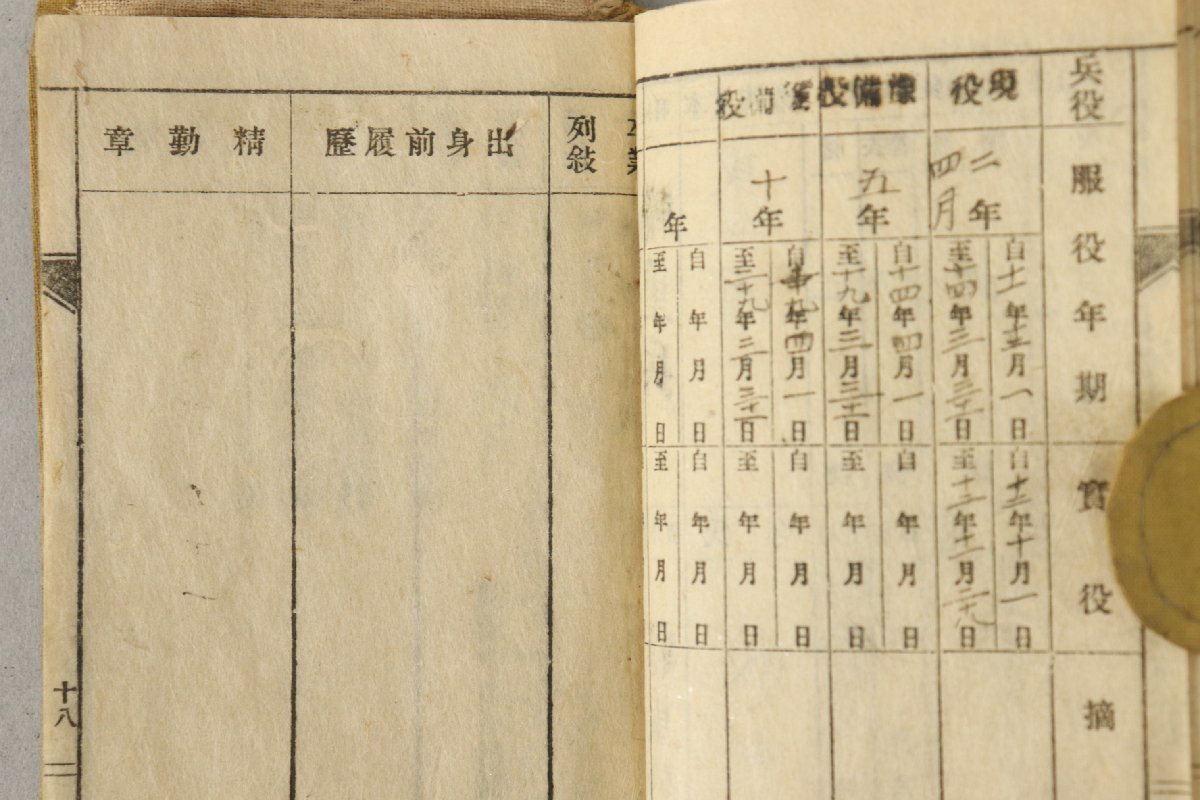 兵役
服役年期
實役
摘
現役
二年
四月
自十一年十二月一日
至十四年三月三十一日
自十二年十月一日
至十二年十一月二十九日
豫備役
五年
自十四年四月一日
至十九年三月三十一日
自年月日
至年月日
備役
十年
自十九年四月一日
至二十九年三月三十一日
自年月日
至年月日
年
自年月日
至年月日
自年月日
至年月日
列敍
出身前履歷
精勤章
十八